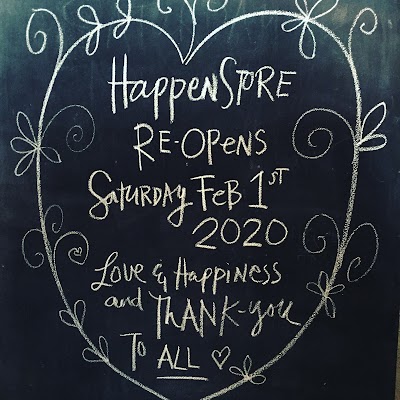 HappenStore
Re-Opens
Saturday Feb 1st
2020
Love & Happiness
and Thank-you
To All ♡